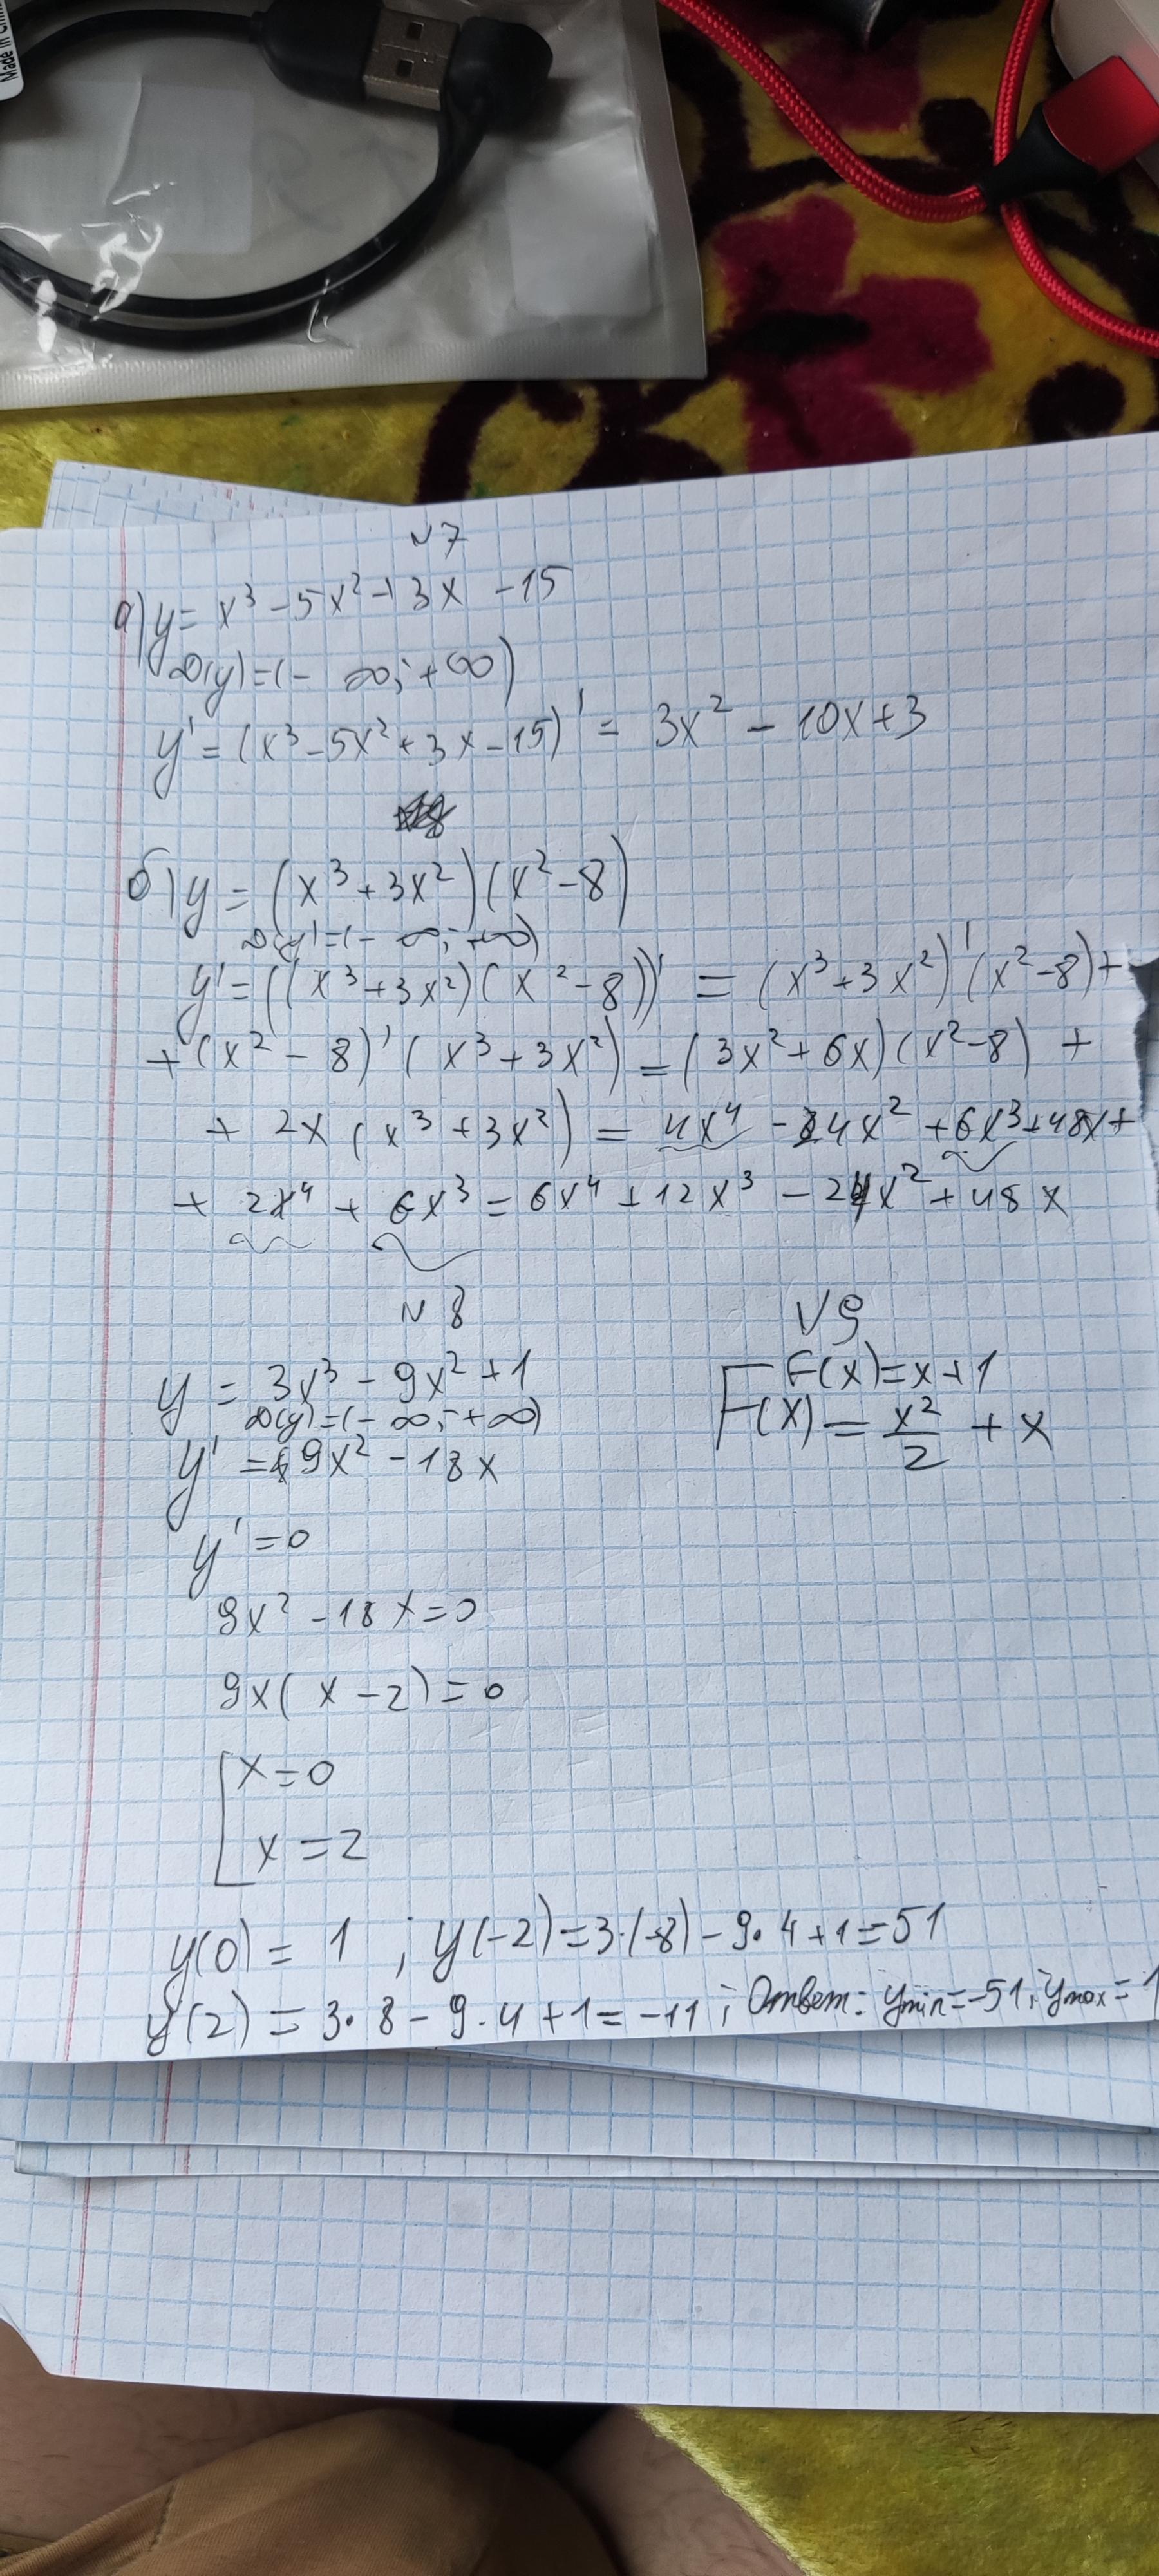 Made in China
№7
а) y = x³ - 5x² + 3x - 15
D(y) = (- ∞; +∞)
y' = (x³ - 5x² + 3x - 15)' = 3x² - 10x + 3
б) y = (x³ + 3x²)(x² - 8)
D(y) = (- ∞; +∞)
y' = ((x³ + 3x²)(x² - 8))' = (x³ + 3x²)'(x² - 8) +
+ (x² - 8)'(x³ + 3x²) = (3x² + 6x)(x² - 8) +
+ 2x (x³ + 3x²) = 4x⁴ - 24x² + 6x³ + 48x +
+ 2x⁴ + 6x³ = 6x⁴ + 12x³ - 24x² + 48x
№8
y = 3x³ - 9x² + 1
D(y) = (- ∞; +∞)
y' = 9x² - 18x
y' = 0
9x² - 18x = 0
9x(x - 2) = 0
x = 0
x = 2
y(0) = 1 ; y(-2) = 3·(-8) - 9·4 + 1 = 51
y(2) = 3·8 - 9·4 + 1 = -11 ; Ответ: ymin = -51; ymax = 1
№9
F(x) = x + 1
F(x) = x²/2 + x